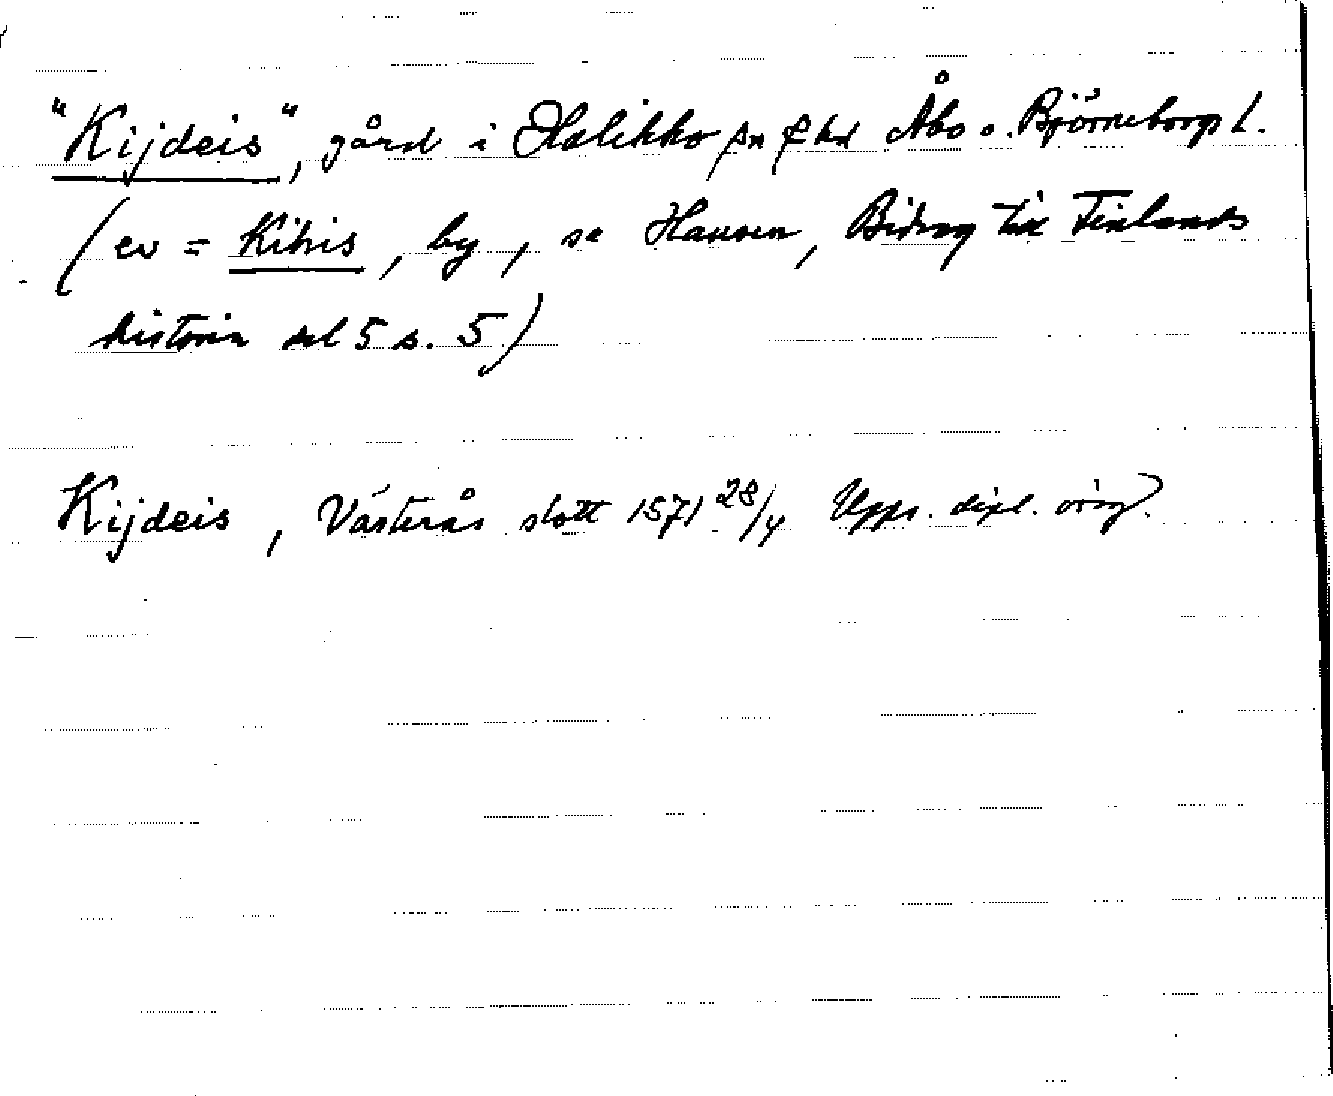 "Kijdeis", gård i Halikko sn o hd Åbo o. Björneborgs l.
(ev = Kihis, by, se Hausen, Bidrag till Finlands
historia del 5 s. 5)
Kijdeis, Västerås slott 1571 28/4 Upps. dipl. orig.